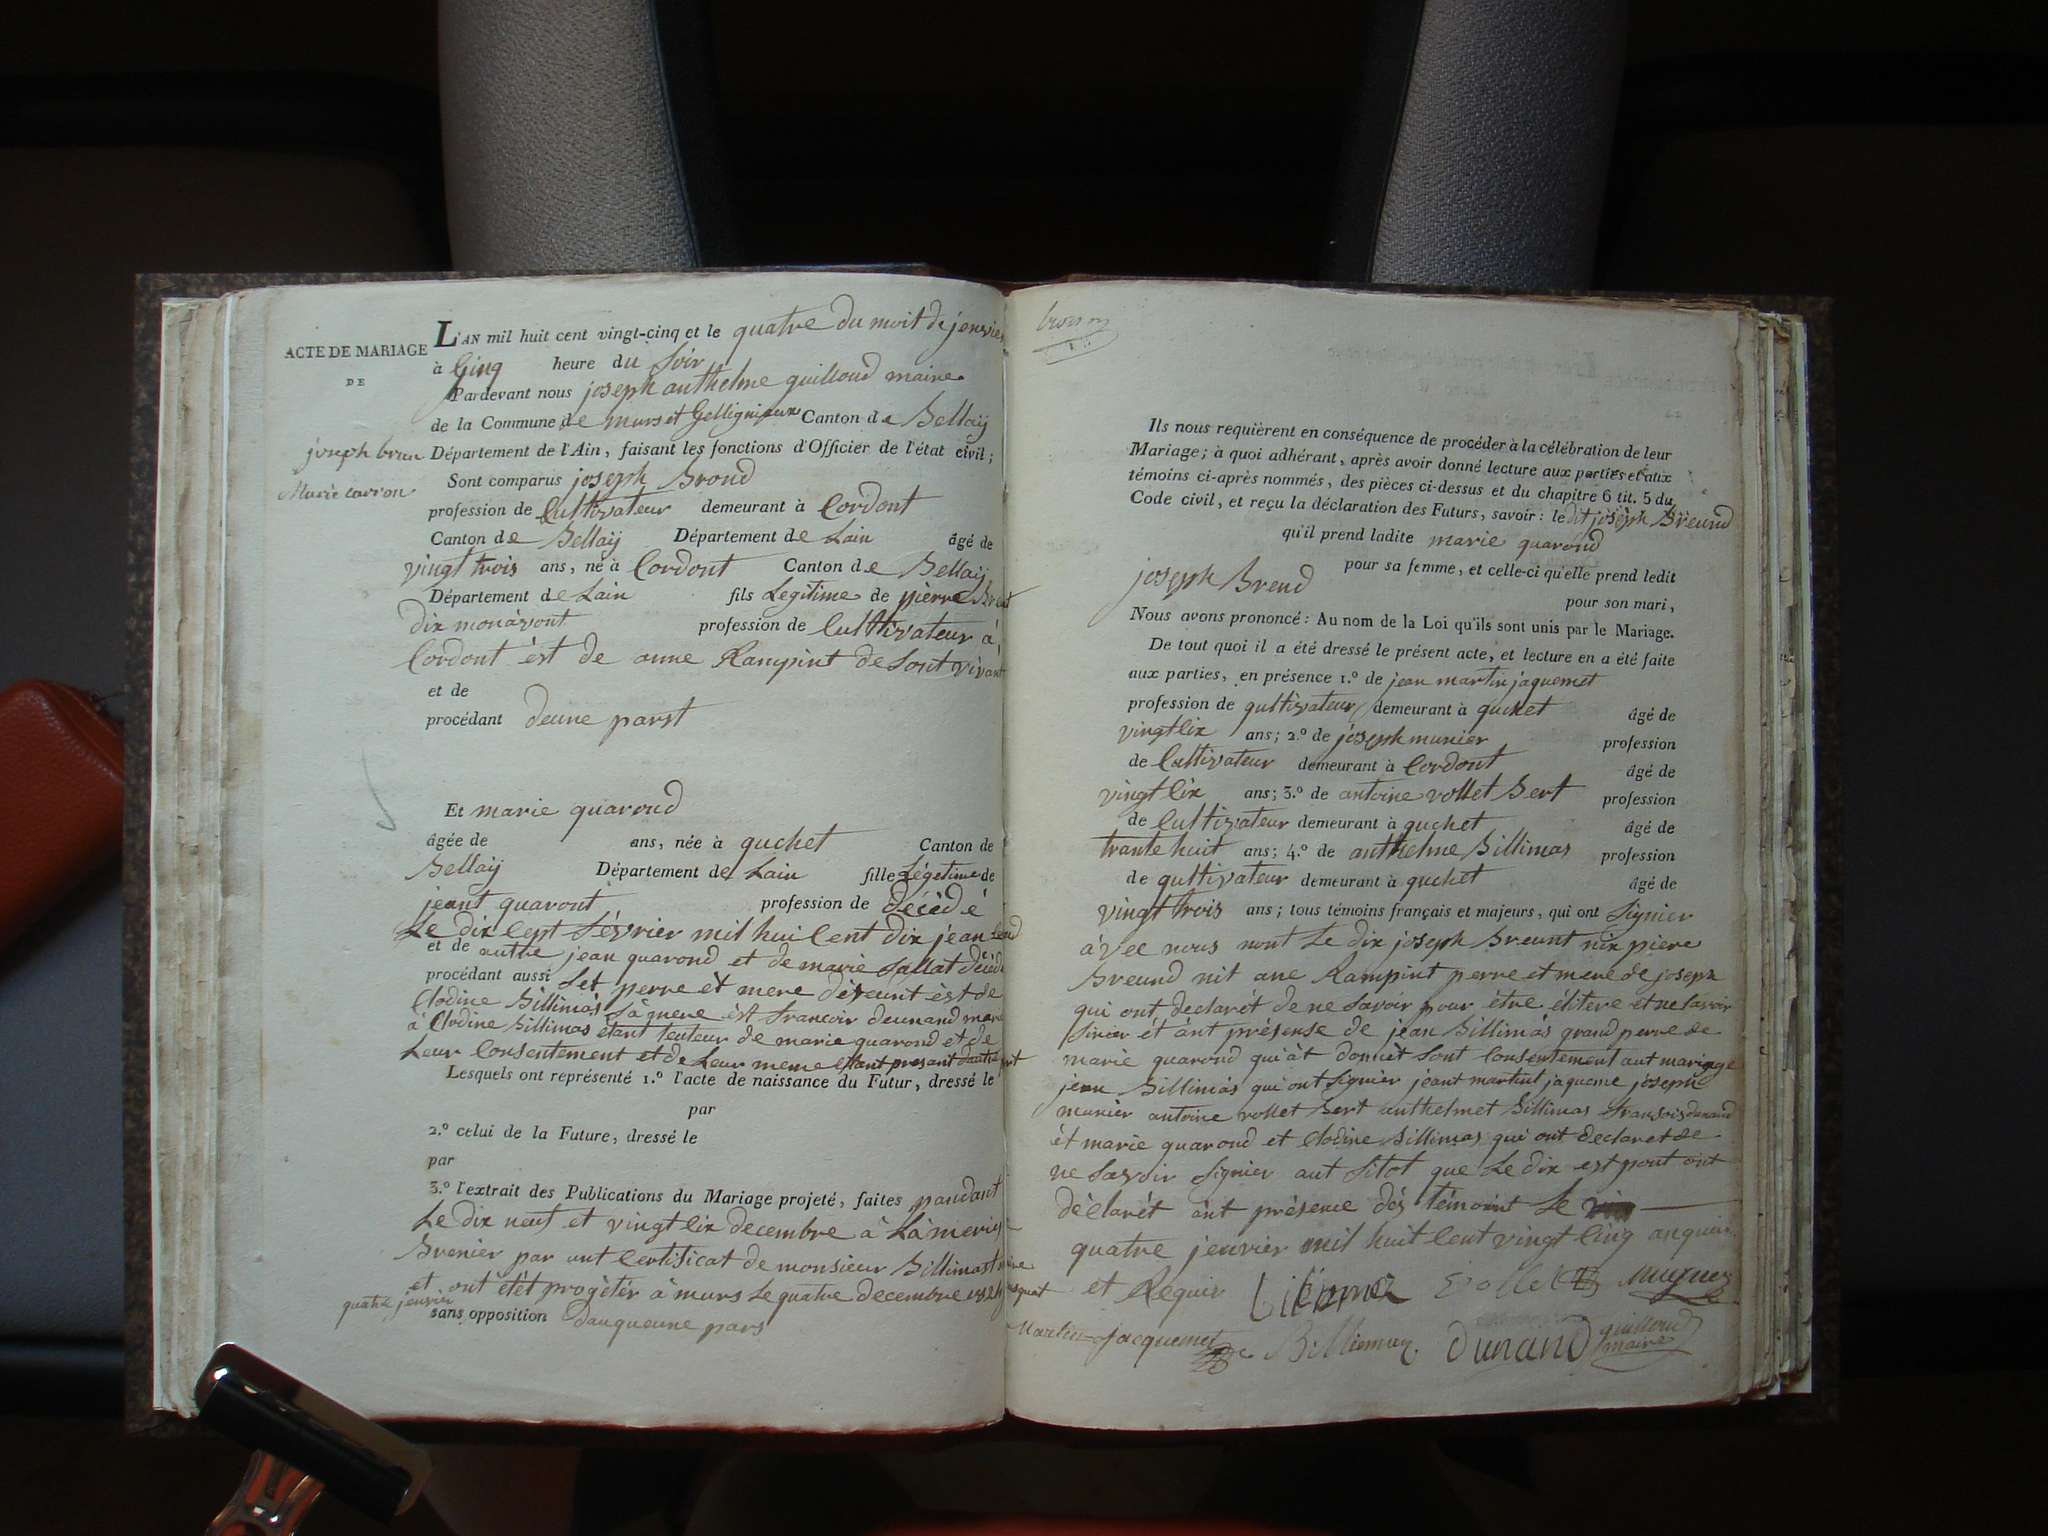 ACTE DE MARIAGE
DE
joseph brun
Marie carron
L'AN mil huit cent vingt-cinq et le quatre du moit de jenvier
à Cinq heure du soir
Pardevant nous joseph anthelme guilloud maire
de la Commune de murs et Gellignieux Canton de Bellaÿ
Département de l'Ain, faisant les fonctions d'Officier de l'état civil;
Sont comparus joseph Broud
profession de Cultivateur demeurant à Cordont
Canton de Bellaÿ Département de Lain âgé de
vingt trois ans, né à Cordont Canton de Bellaÿ
Département de Lain fils Legitime de pierre
dix monavont profession de Cultivateur à
Cordont èst de anne Rampint de sont vivant
et de
procédant deune parst
Et marie quaroud
âgée de ans, née à quchet Canton de
Bellaÿ Département de Lain fille Légetime de
jeant quaront profession de décèdé
Le dix cept Février mil hui cent dix jean
et de authe jean quaroud et de marie sallat décèdé
procédant aussi set perre èt mere deseunt èst de
Clodine Billimas sa quere èst francoir deunand mare
à Clodine Billimas etant teuteur de marie quaroud et de
Leur Consentement et de Leur meme etant presant dautre part
Lesquels ont représenté 1.º l'acte de naissance du Futur, dressé le
par
2.º celui de la Future, dressé le
par
3.º l'extrait des Publications du Mariage projeté, faites pandant
Le dix neuf et vingt six decembre à Lameris
Brenier par unt Certificat de monsieur Billimast maire
et ont étét progètér à murs Le quatre decembre
quatre jenvier
sans opposition dauqueune pars
Ils nous requièrent en conséquence de procéder à la célébration de leur
Mariage; à quoi adhérant, après avoir donné lecture aux parties et aux
témoins ci-après nommés, des pièces ci-dessus et du chapitre 6 tit. 5 du
Code civil, et reçu la déclaration des Futurs, savoir: le dit joseph Breund
qu'il prend ladite marie quaroud
pour sa femme, et celle-ci qu'elle prend ledit
joseph Breud
pour son mari,
Nous avons prononcé: Au nom de la Loi qu'ils sont unis par le Mariage.
De tout quoi il a été dressé le présent acte, et lecture en a été faite
aux parties, en présence 1.º de jean martin jaquemet
profession de qultivateur demeurant à quchet âgé de
vingt six ans; 2.º de joseph munier profession
de Cultivateur demeurant à Cordont âgé de
vingt six ans; 3.º de antoine vollet Bert profession
de Cultivateur demeurant à quchet âgé de
trante huit ans; 4.º de anthelme Billimas profession
de qultivateur demeurant à quchet âgé de
vingt trois ans; tous témoins français et majeurs, qui ont signier
àvec nous nont Le dix joseph Breunt nix piere
Breund nit ane Rampint perre et mere de joseph
qui ont declarét de ne savoir pour ètre élitere et ne savoir
sinier ét ànt présense de jean Billimas grand perre de
marie quaroud qui àt donnét sont Consentement aut mariage
jean Billimas qui ont signier jeant martint jaqueme joseph
munier antoine vollet Bert anthelmet Billimas fransois dunand
èt marie quaroud et Clodine Billimas qui ont declaret de
ne savoir signier aut sitot que Le dix est pont ont
dèclarét ant présence dés témoint Le
quatre jenvier mil huit cent vingt cinq anquir
et Requir vollet B Mugnier
Martin Jacquemet Billiemaz Dunand guilloud
maire